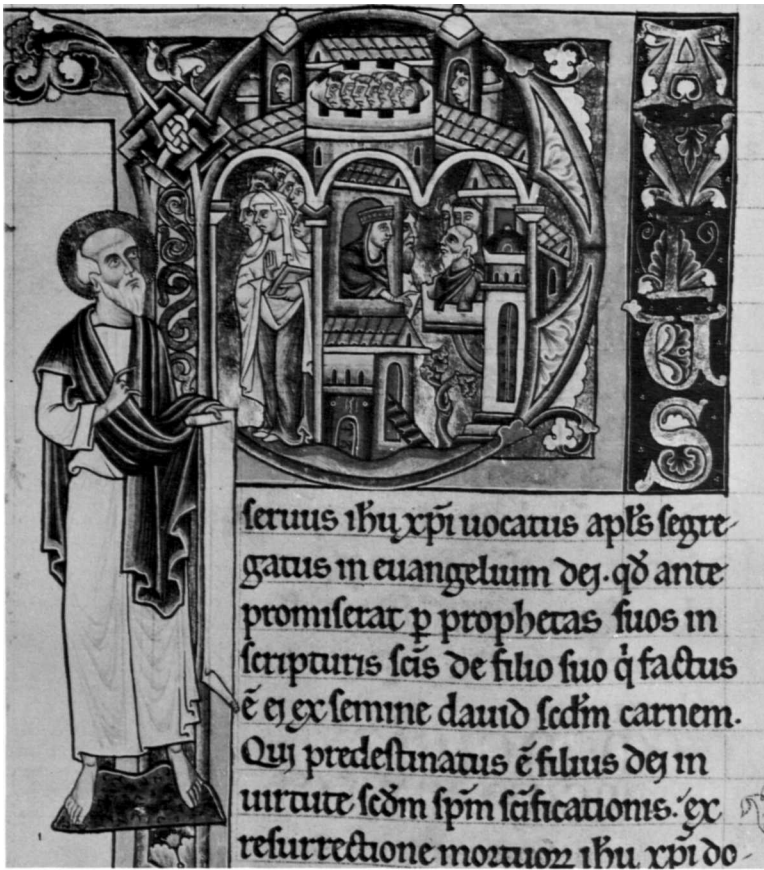 P
AVLUS
seruus ih̅u xp̅i uocatus apl̅s segre-
gatus in euangelium dei. qd̅ ante
promiserat p̲ prophetas suos in
scripturis sc̅is de filio suo qi̇ factus
e̅ ei ex semine dauid scd̅m carnem.
Qui predestinatus e̅ filius dei in
uirtute scd̅m sp̅m sc̅ificationis. ex
resurrectione mortuoꝝ ih̅u xp̅i do-